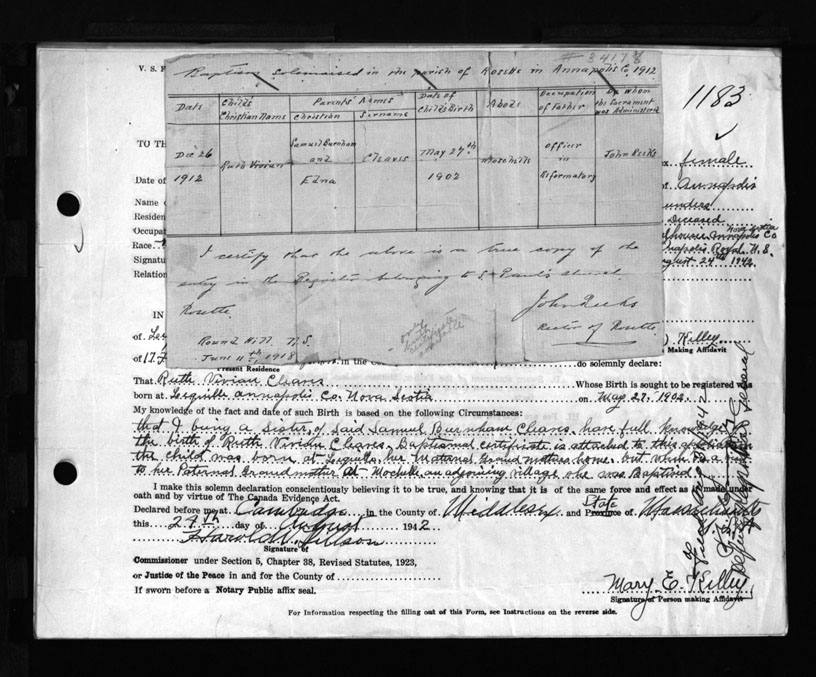 # 34178
Baptism solemnised in the parish of Rosette in Annapolis Co 1912
Date
Child's Christian Name
Parents' Names
Christian
Surname
Date of Child's Birth
Abode
Occupation of Father
By whom the Sacrament was Administered
Dec 26 1912
Ruth Vivian
Samuel Burnham and Edna
Cleaves
May 27th 1902
Mochelle
Officer in Reformatory
John Reeks
I certify that the above is a true copy of the
entry in the Register belonging to S. Paul's church
Rosette.
John Reeks
Rector of Rosette
Round Hill N.S.
June 11th, 1918
1183
V. S. F
TO TH
female
Date of
Annapolis
Name o
Residen
deceased
Occupa
Annapolis Co
Nova Scotia
Race.
Annapolis Royal N.S.
Signatu
August 24th 1942
Relation
IN
of
Kelley
Making Affidavit
of 17
Present Residence
in the Co
do solemnly declare:
That Ruth Vivian Cleaves Whose Birth is sought to be registered was
born at Lequille Annapolis Co. Nova Scotia on May 27, 1902.
My knowledge of the fact and date of such Birth is based on the following Circumstances:
that I being a sister of said Samuel Burnham Cleaves have full knowledge of
the birth of Ruth Vivian Cleaves. Baptismal certificate is attached to this application
the child was born at Lequille, her Maternal Grandmothers home. but when
to her Paternal Grandmother at Mochelle an adjoining village she was Baptised
I make this solemn declaration conscientiously believing it to be true, and knowing that it is of the same force and effect as if made under
oath and by virtue of The Canada Evidence Act.
Declared before me at Cambridge in the County of Middlesex and State Province of Massachusetts
this 24th day of August 1942
Harold W.
Signature of
Commissioner under Section 5, Chapter 38, Revised Statutes, 1923,
or Justice of the Peace in and for the County of
If sworn before a Notary Public affix seal.
Mary E. Kelley
Signature of Person making Affidavit
For Information respecting the filling out of this Form, see Instructions on the reverse side.
Deputy Registrar General